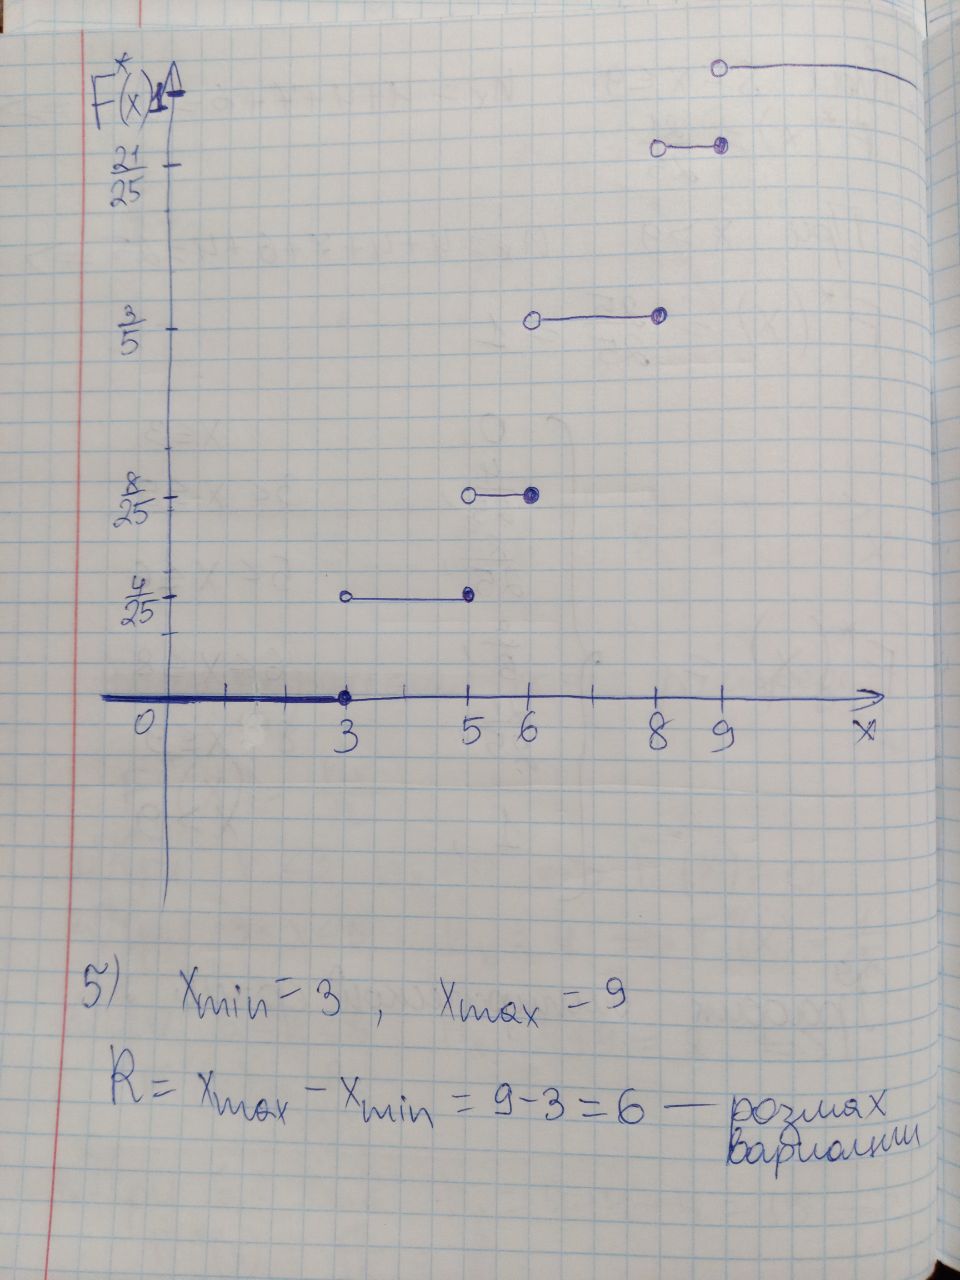 F*(x) 1
21/25
3/5
8/25
4/25
0 3 5 6 8 9 x
5) x_min = 3 , x_max = 9
R = x_max − x_min = 9 − 3 = 6 — розмах
вариации